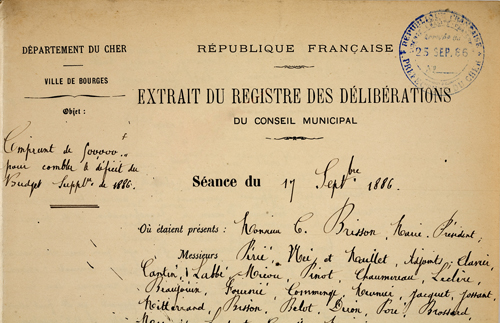 DÉPARTEMENT DU CHER
VILLE DE BOURGES
Objet :
Emprunt de 500000 f
pour combler le déficit du
Budget Suppl.re de 1886.
RÉPUBLIQUE FRANÇAISE
RÉPUBLIQUE FRANÇAISE
25 SEP. 86
EXTRAIT DU REGISTRE DES DÉLIBÉRATIONS
DU CONSEIL MUNICIPAL
Séance du 17 Septbre 1886.
Où étaient présents : Monsieur E. Brisson, Maire-Président;
Messieurs Pirié, Méi et Naullet, Adjoints,
Cantin, Labbé, Mirou, Pinot, Chaumereau, Leclère,
Beaujouin, Commenge, Meunier, Jacquet, Jossant,
Mitterrand, Bisson, Belot, Dion, Poie, Brossard